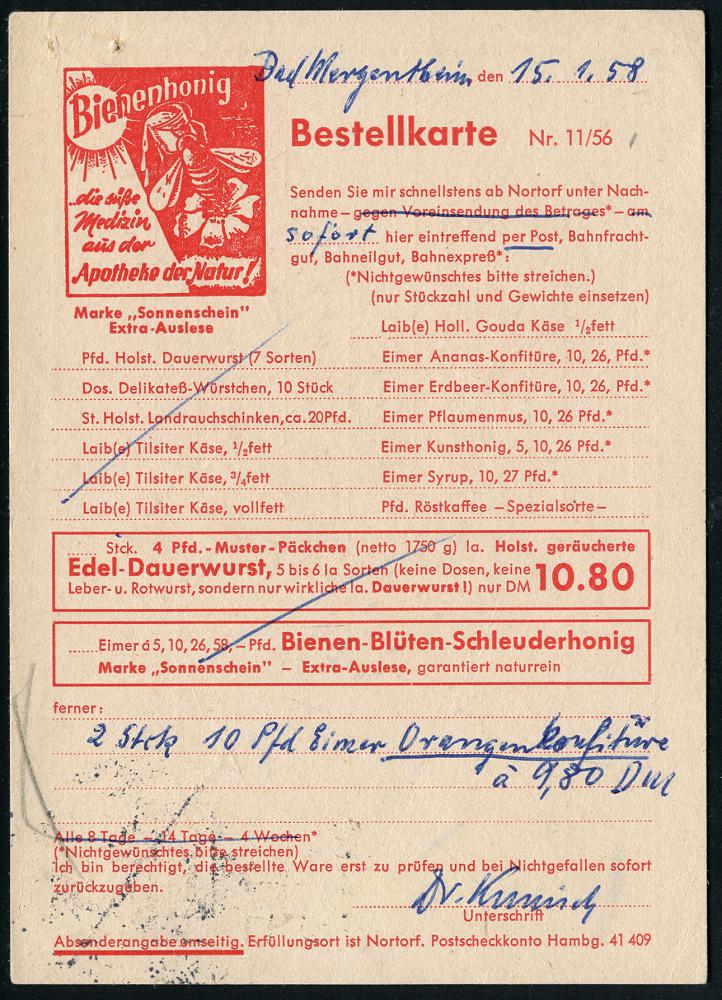 Bad Mergentheim, den 15. 1. 58
Bienenhonig
„die süße
Medizin
aus der
Apotheke der Natur!
Marke „Sonnenschein”
Extra-Auslese
Bestellkarte Nr. 11/56
Senden Sie mir schnellstens ab Nortorf unter Nach-
nahme – gegen Voreinsendung des Betrages* – am
sofort hier eintreffend per Post, Bahnfracht-
gut, Bahneilgut, Bahnexpreß*:
(*Nichtgewünschtes bitte streichen.)
(nur Stückzahl und Gewichte einsetzen)
Laib(e) Holl. Gouda Käse ½fett
Pfd. Holst. Dauerwurst (7 Sorten) Eimer Ananas-Konfitüre, 10, 26, Pfd.*
Dos. Delikateß-Würstchen, 10 Stück Eimer Erdbeer-Konfitüre, 10, 26, Pfd.*
St. Holst. Landrauchschinken, ca. 20 Pfd. Eimer Pflaumenmus, 10, 26 Pfd.*
Laib(e) Tilsiter Käse, ½fett Eimer Kunsthonig, 5, 10, 26 Pfd.*
Laib(e) Tilsiter Käse, ¾fett Eimer Syrup, 10, 27 Pfd.*
Laib(e) Tilsiter Käse, vollfett Pfd. Röstkaffee – Spezialsorte –
Stck. 4 Pfd.-Muster-Päckchen (netto 1750 g) Ia. Holst. geräucherte
Edel-Dauerwurst, 5 bis 6 Ia Sorten (keine Dosen, keine
Leber- u. Rotwurst, sondern nur wirkliche Ia. Dauerwurst!) nur DM 10.80
Eimer á 5, 10, 26, 58, – Pfd. Bienen-Blüten-Schleuderhonig
Marke „Sonnenschein” – Extra-Auslese, garantiert naturrein
ferner:
2 Stck 10 Pfd Eimer Orangenkonfitüre
à 9,80 DM
Alle 8 Tage – 14 Tage – 4 Wochen*
(*Nichtgewünschtes bitte streichen)
Ich bin berechtigt, die bestellte Ware erst zu prüfen und bei Nichtgefallen sofort
zurückzugeben.
Dr.
Unterschrift
Absenderangabe umseitig. Erfüllungsort ist Nortorf. Postscheckkonto Hambg. 41 409